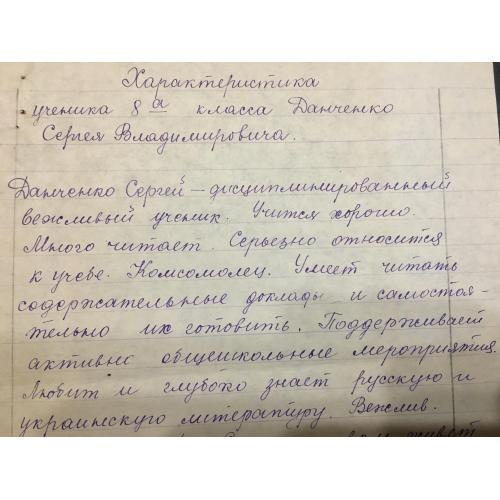 Характеристика
ученика 8 а класса Данченко
Сергея Владимировича.
Данченко Сергей – дисциплинированный
вежливый ученик. Учится хорошо.
Много читает. Серьезно относится
к учебе. Комсомолец. Умеет читать
содержательные доклады и самостоя-
тельно их готовить. Поддерживает
активно общешкольные мероприятия.
Любит и глубоко знает русскую и
украинскую литературу. Вежлив.